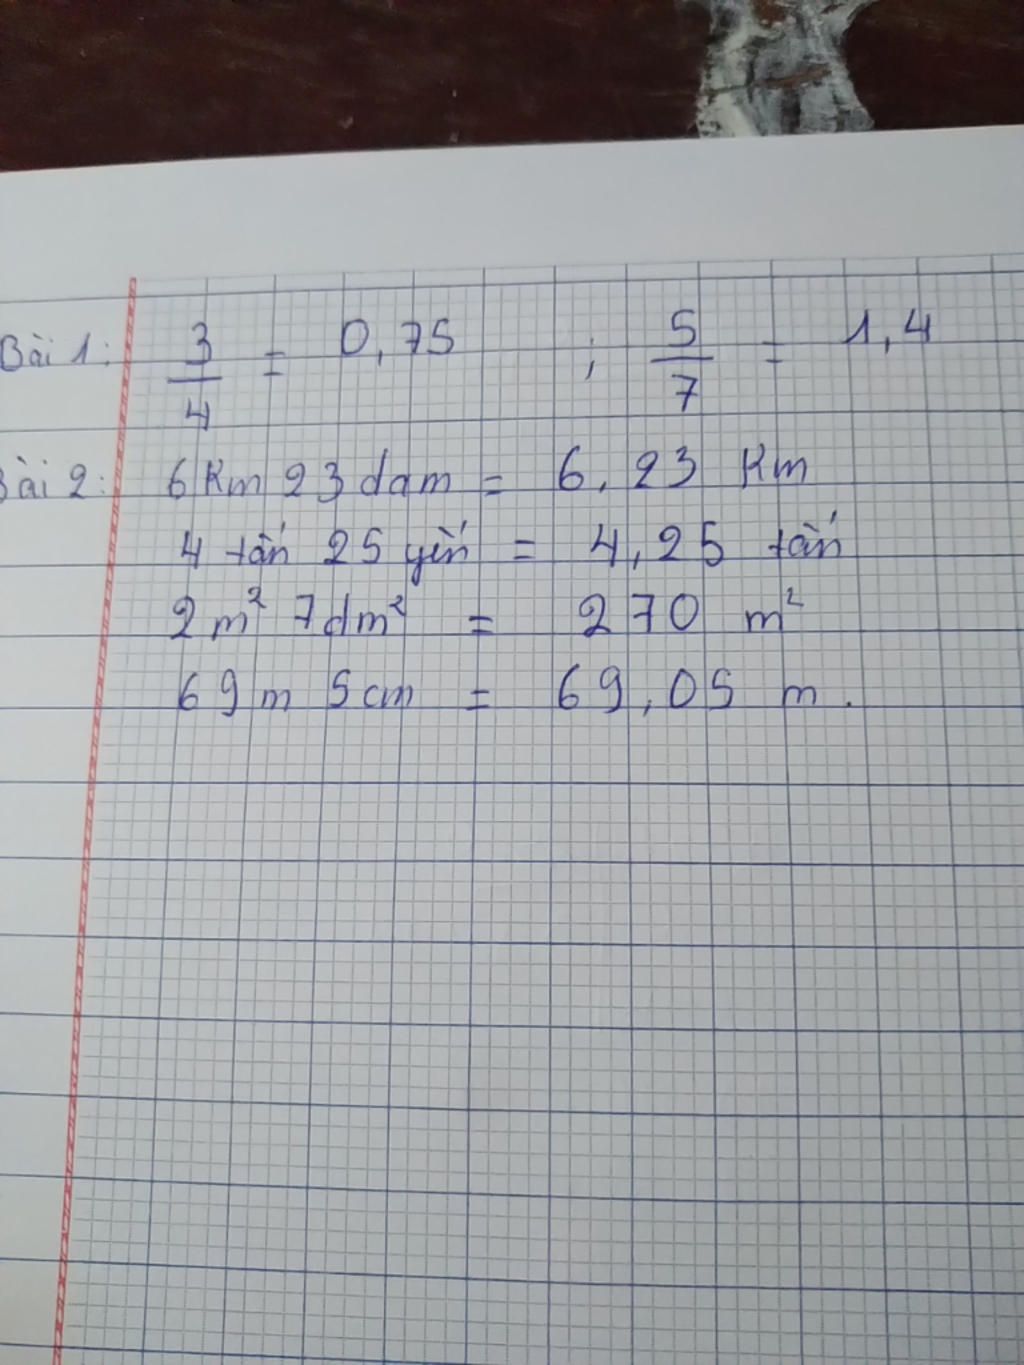 Bài 1: 3/4 = 0,75 ; 5/7 = 1,4
Bài 2: 6 Km 23 dam = 6,23 Km
4 tấn 25 yến = 4,25 tấn
2 m² 7 dm² = 270 m²
69 m 5 cm = 69,05 m.